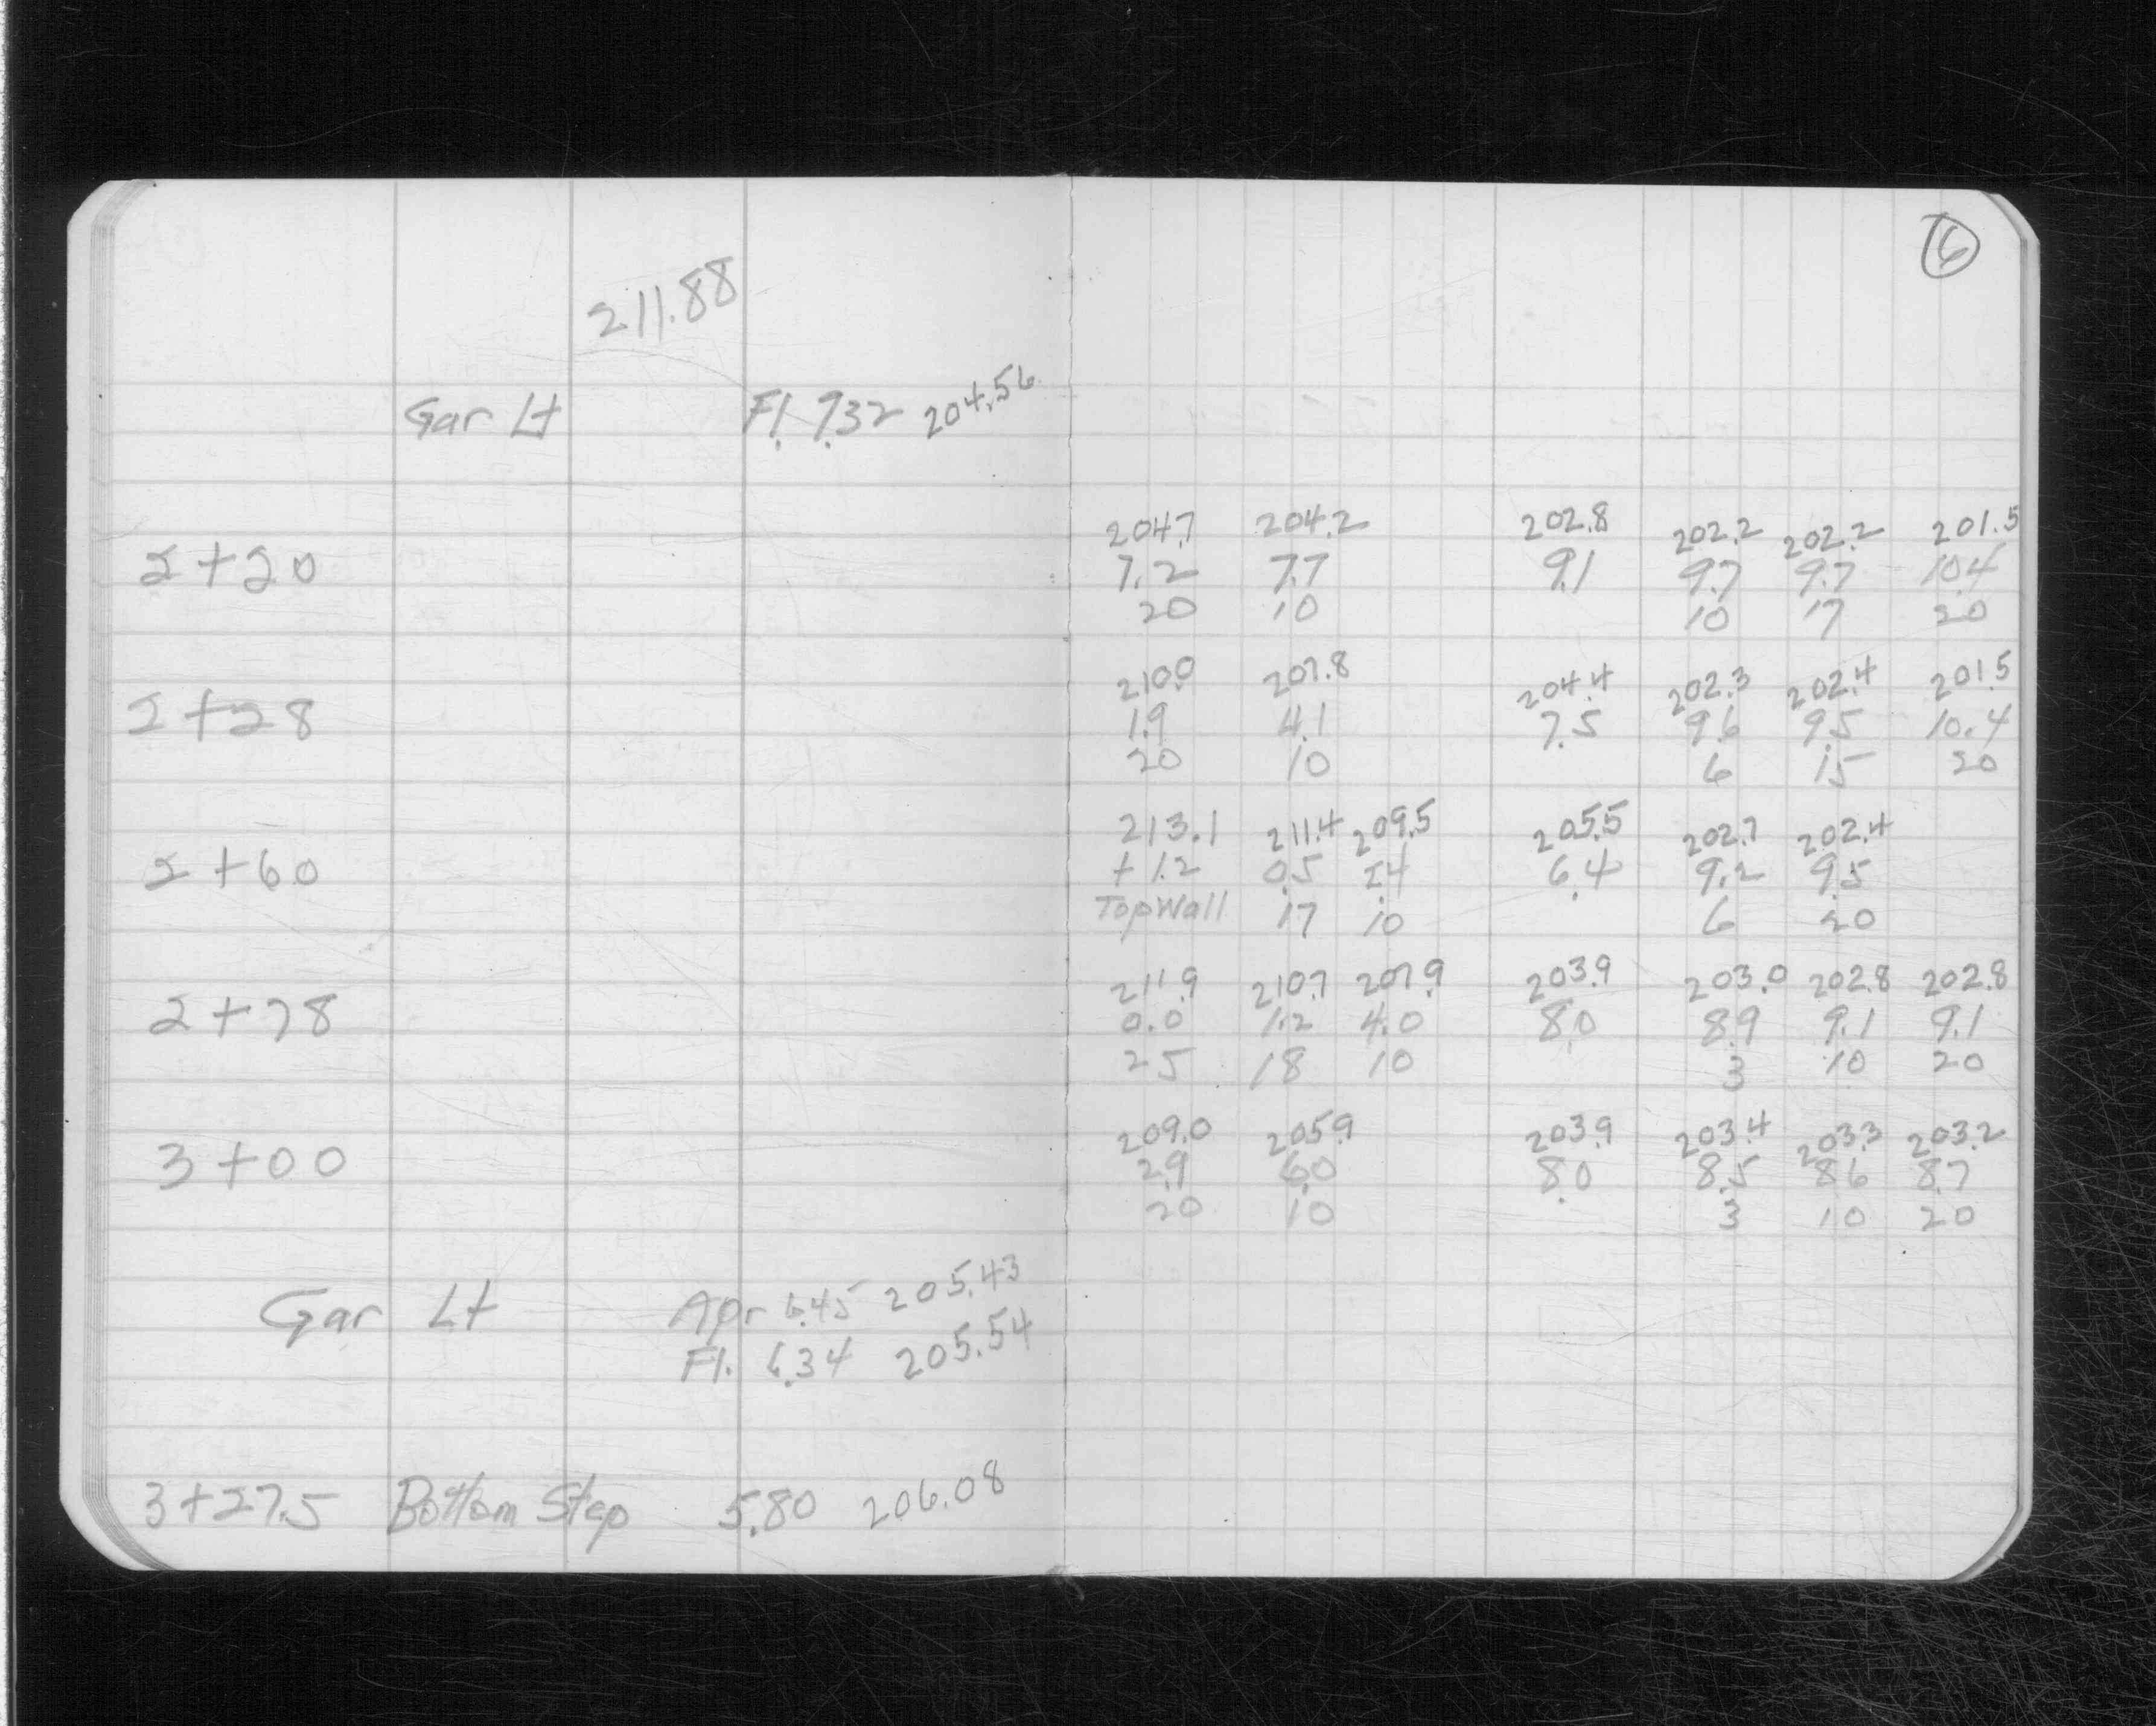 6
211.88
Gar Lt Fl. 7.32 204.56
204.7 204.2 202.8 202.2 202.2 201.5
2+20 7.2 7.7 9.1 9.7 9.7 10.4
20 10 10 17 20
210.0 207.8 204.4 202.3 202.4 201.5
2+28 1.9 4.1 7.5 9.6 9.5 10.4
20 10 6 15 20
213.1 211.4 209.5 205.5 202.7 202.4
2+60 +1.2 0.5 2.4 6.4 9.2 9.5
Top Wall 17 10 6 20
211.9 210.7 207.9 203.9 203.0 202.8 202.8
2+78 0.0 1.2 4.0 8.0 8.9 9.1 9.1
25 18 10 3 10 20
209.0 205.9 203.9 203.4 203.3 203.2
3+00 2.9 6.0 8.0 8.5 8.6 8.7
20 10 3 10 20
Gar Lt Apr 6.45 205.43
Fl. 6.34 205.54
3+27.5 Bottom Step 5.80 206.08